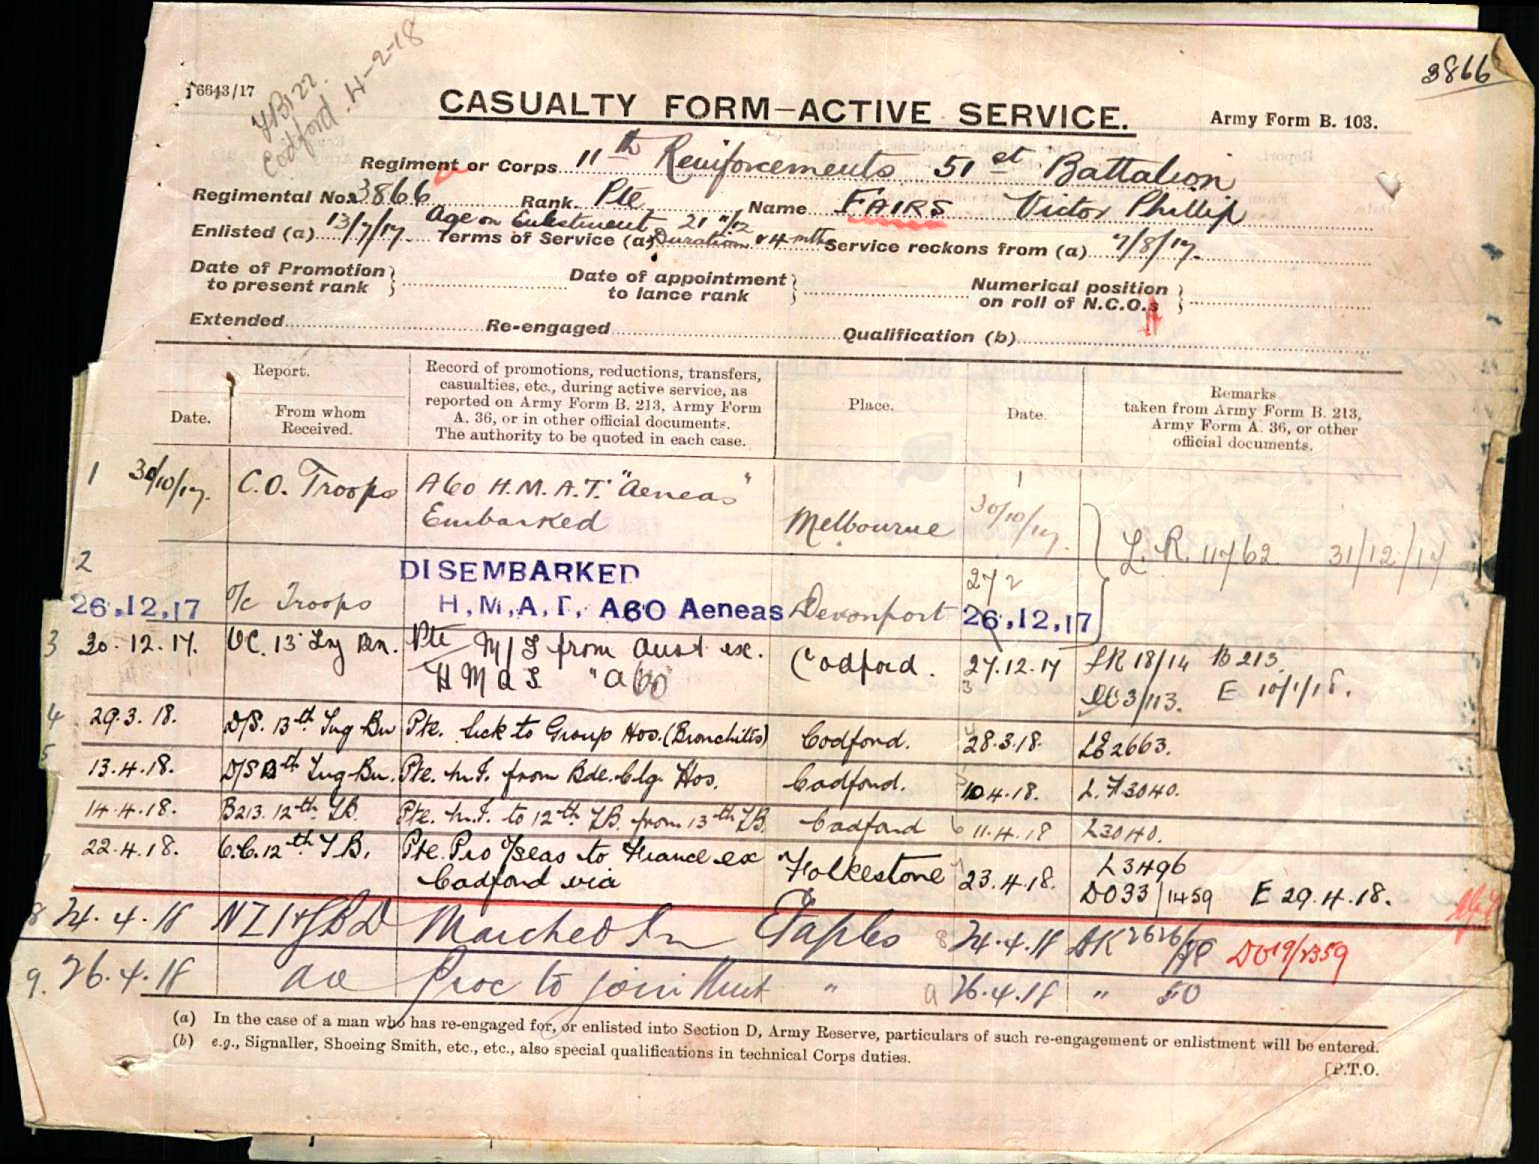 3866
16643/17
Codford 4-2-18
CASUALTY FORM—ACTIVE SERVICE.
Army Form B. 103.
Regiment or Corps 11th Reinforcements 51st Battalion
Regimental No. 3866 Rank Pte Name FAIRS Victor Phillip
Age on Enlistment 21 11/12
Enlisted (a) 13/7/17. Terms of Service (a) Duration & 4 mths Service reckons from (a) 7/8/17.
Date of Promotion to present rank } Date of appointment to lance rank } Numerical position on roll of N.C.O.s }
Extended Re-engaged Qualification (b)
Report.
Date. From whom Received.
Record of promotions, reductions, transfers, casualties, etc., during active service, as reported on Army Form B. 213, Army Form A. 36, or in other official documents. The authority to be quoted in each case.
Place. Date.
Remarks taken from Army Form B. 213, Army Form A. 36, or other official documents.
1 30/10/17. C.O. Troops A60 H.M.A.T. "Aeneas" Embarked Melbourne 30/10/17. L.R. 11762 31/12/17
2 26.12.17 O/c Troops DISEMBARKED H.M.A.T. A60 Aeneas Devonport 26.12.17
3 30.12.17. OC. 13 Trg Bn. Pte M/I from Aust ex. HMAT "A60 Codford. 27.12.17 LR 18/14 B213. E 10/1/18.
4 29.3.18. O/S. 13th Trg Bn Pte. Sick to Group Hos. (Bronchitis) Codford. 28.3.18. LE2663.
5 13.4.18. 13th Trg Bn. Pte. M.I. from Bde. Clg. Hos. Codford. 10.4.18. L.F3040.
14.4.18. B213. 12th TB. Pte. M.I. to 12th TB. from 13th TB. Codford 6 11.4.18 L3040.
22.4.18. O.C. 12th T.B. Pte. Pro O/seas to France ex Codford via Folkestone 7 23.4.18. L3496 DO33/1459 E 29.4.18.
8 24.4.18 Marched In Etaples 8 24.4.18 AK2626 DO19/2359
9. 26.4.18 do Proc to join Unit " 9 26.4.18 "
(a) In the case of a man who has re-engaged for, or enlisted into Section D, Army Reserve, particulars of such re-engagement or enlistment will be entered.
(b) e.g., Signaller, Shoeing Smith, etc., etc., also special qualifications in technical Corps duties.
[P.T.O.